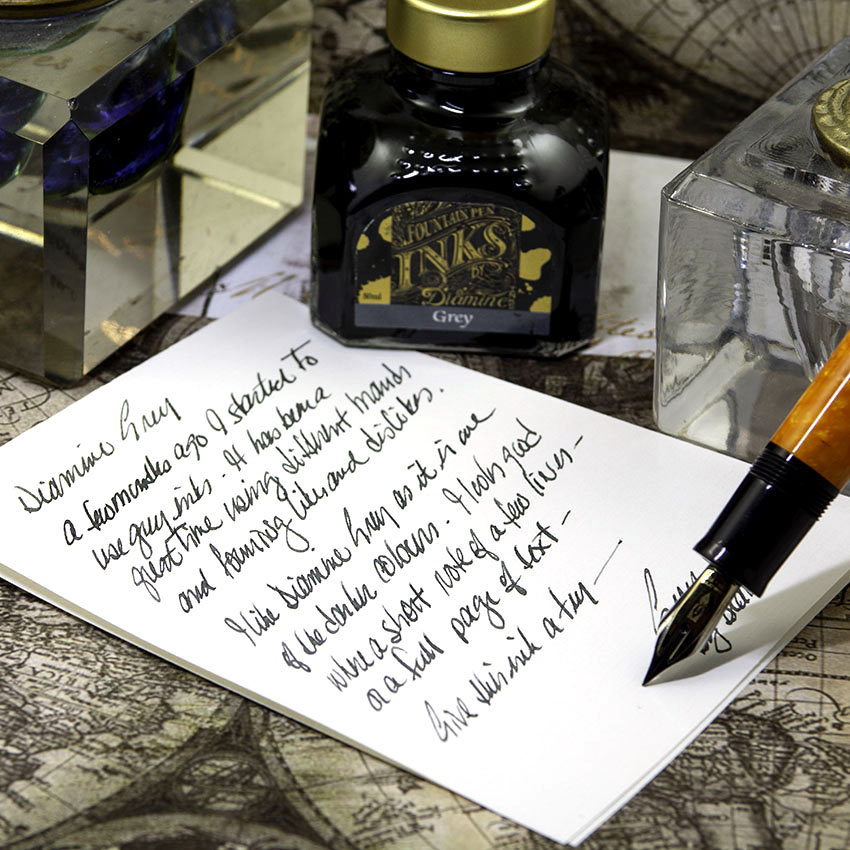 FOUNTAIN PEN
INKS
BY
Diamine
80ml
Grey
Diamine Grey
A few months ago I started to
use grey inks. It has been a
great time using different brands
and forming likes and dislikes.
I like Diamine Grey as it is one
of the darker colours. It looks good
when a short note of a few lines –
or a full page of text –
Give this ink a try —